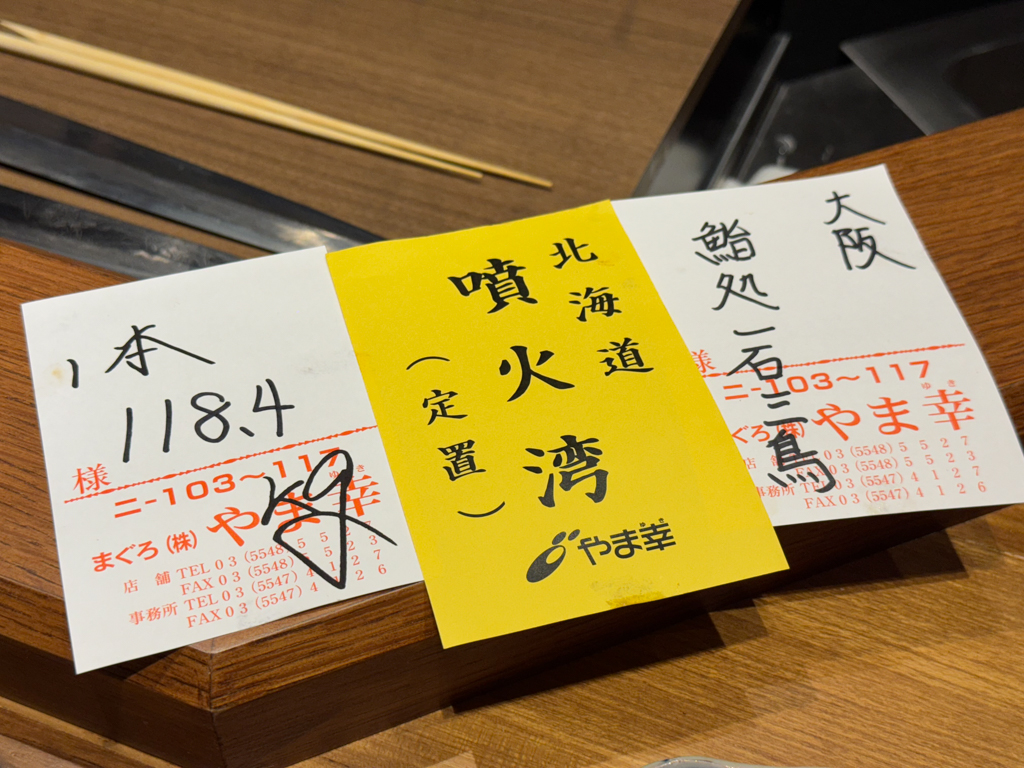 1本
118.4
kg
様
ニ-103～117
ゆき
まぐろ(株)やま幸
店 舗 TEL 03 (5548) 5 5 2 7
FAX 03 (5548) 5 5 2 3
事務所 TEL 03 (5547) 4 1 2 7
FAX 03 (5547) 4 1 2 6
北海道
噴火湾
(定置)
やま幸
大阪
鮨処 一石三鳥
様
ニ-103～117
ゆき
ぐろ(株)やま幸
店 舗 TEL 03 (5548) 5 5 2 7
FAX 03 (5548) 5 5 2 3
事務所 TEL 03 (5547) 4 1 2 7
FAX 03 (5547) 4 1 2 6